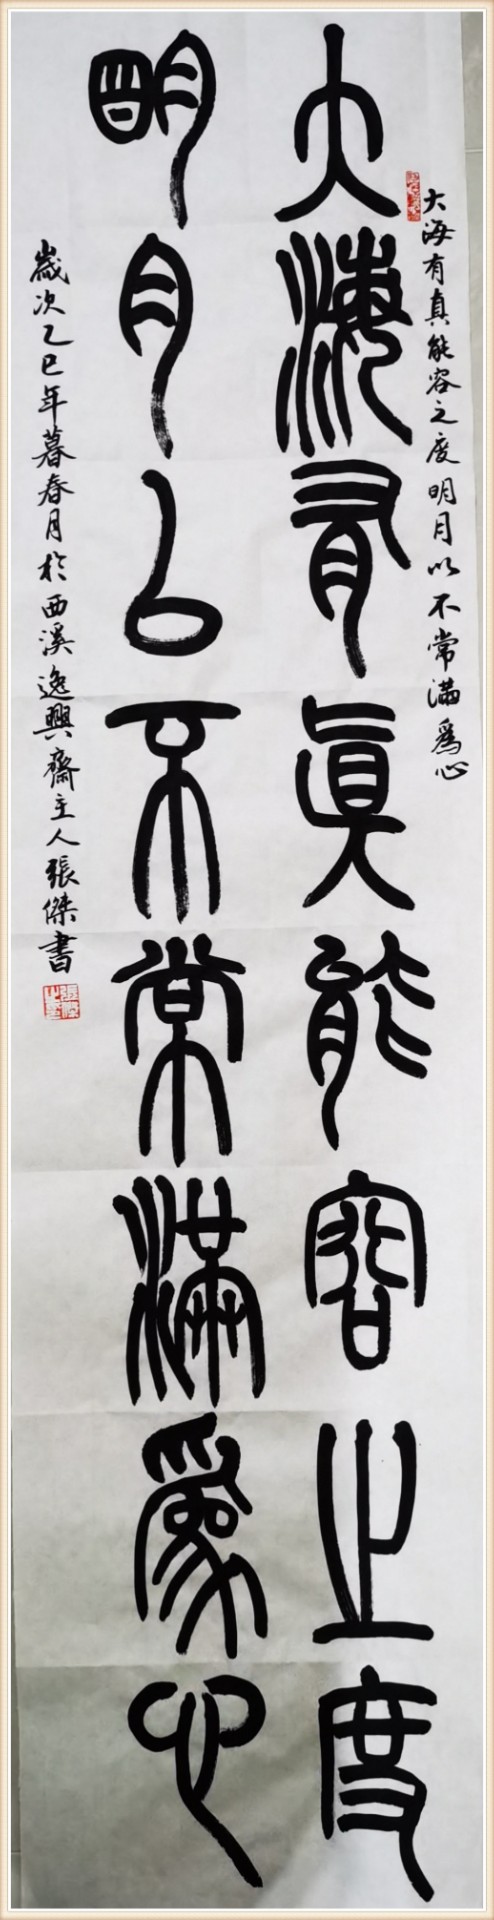 大海有真能容之度明月以不常滿爲心
大海有眞能容之度
明月㠯不常滿爲心
歲次乙巳年暮春月於西溪逸興齋主人張傑書
張傑之璽